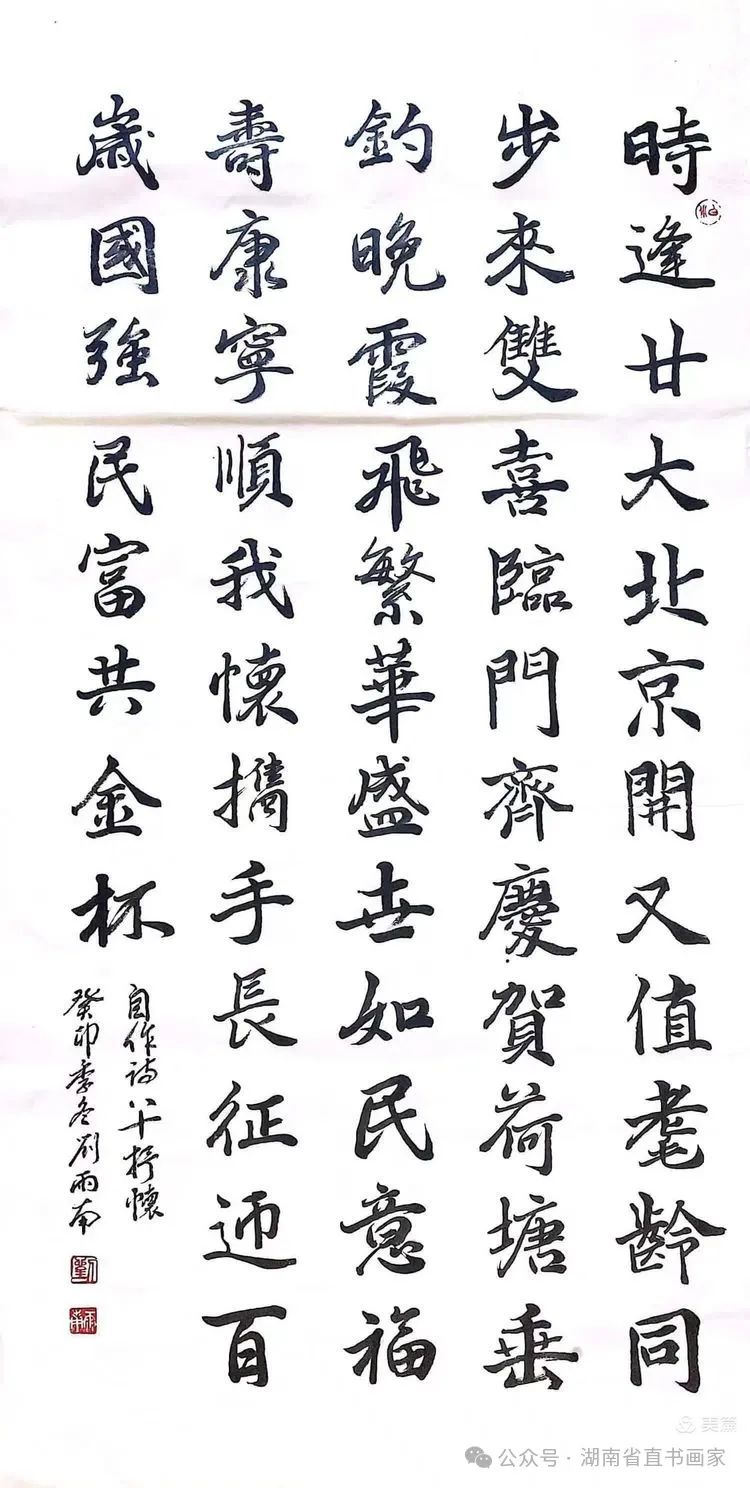 時逢廿大北京開又值耄齡同
步來雙喜臨門齊慶賀荷塘垂
釣晚霞飛繁華盛世如民意福
壽康寧順我懷攜手長征迊百
歲國強民富共金杯
自作詩八十抒懷
癸卯季冬劉雨南
劉
雨南
美篇
公众号·湖南省直书画家